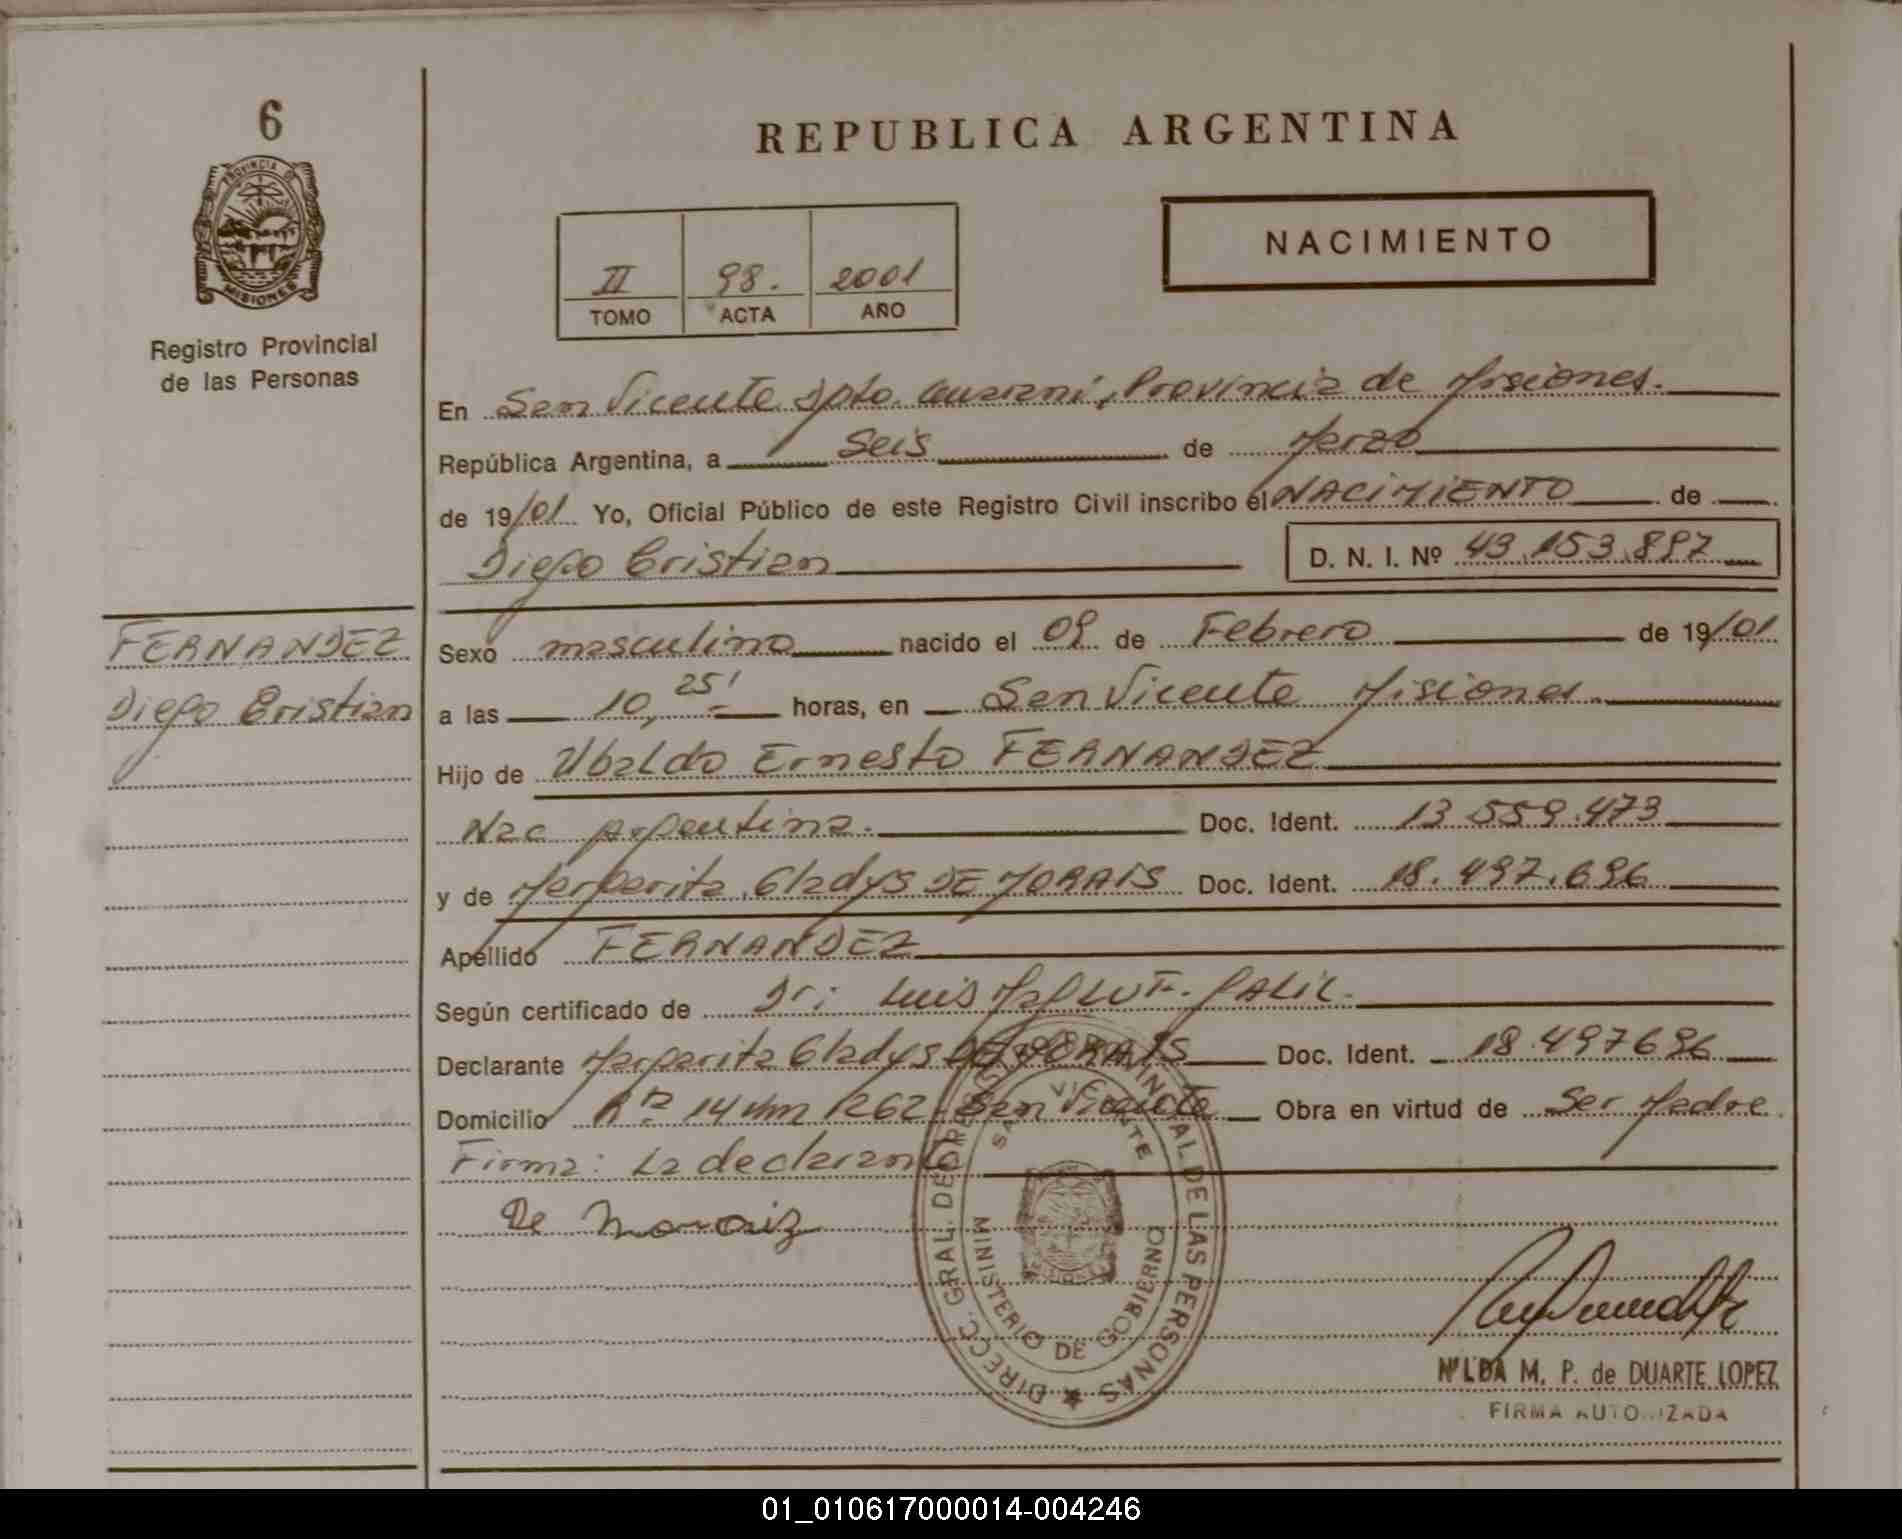 6
PROVINCIA DE
MISIONES
Registro Provincial
de las Personas
REPUBLICA ARGENTINA
II 98. 2001
TOMO ACTA AÑO
NACIMIENTO
En San Vicente Dpto. Guarani, Provincia de Misiones.
República Argentina, a Seis de Marzo
de 19/01 Yo, Oficial Público de este Registro Civil inscribo el NACIMIENTO de
Diego Cristian D. N. I. Nº 43.153.897
FERNANDEZ
Diego Cristian
Sexo masculino nacido el 09 de Febrero de 19/01
a las 10,25' horas, en San Vicente Misiones.
Hijo de Ubaldo Ernesto FERNANDEZ
Nac Argentina. Doc. Ident. 13.559.473
y de Margarita Gladys DE MORAIS Doc. Ident. 18.497.696
Apellido FERNANDEZ
Según certificado de Dr: Luis
Declarante Margarita Gladys DE MORAIS Doc. Ident. 18.497696
Domicilio Rta 14 Km 1262 - San Vicente Obra en virtud de Ser Madre.
Firma: La declarante
De Moraiz
DIRECC. GRAL. DEL REGISTRO PROVINCIAL DE LAS PERSONAS
SAN VICENTE
MINISTERIO DE GOBIERNO
NILDA M. P. de DUARTE LOPEZ
FIRMA AUTORIZADA
01_010617000014-004246